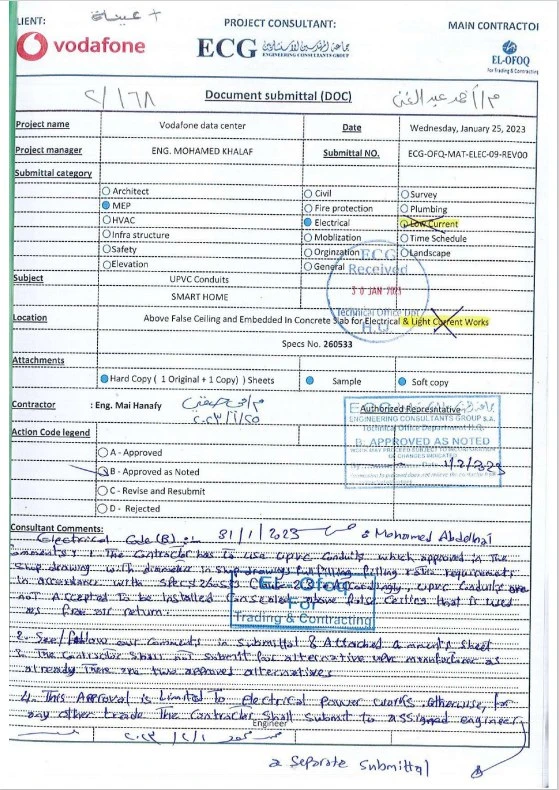 LIENT:
PROJECT CONSULTANT:
MAIN CONTRACTOR
vodafone
ECG
جماعة المهندسين الاستشاريين
ENGINEERING CONSULTANTS GROUP
EL-OFOQ
for Trading & Contracting
٢/١٦٨
Document submittal (DOC)
م/أحمد عبد الغني
Project name
Vodafone data center
Date
Wednesday, January 25, 2023
Project manager
ENG. MOHAMED KHALAF
Submittal NO.
ECG-OFQ-MAT-ELEC-09-REV00
Submittal category
Architect
Civil
Survey
MEP
Fire protection
Plumbing
HVAC
Electrical
Low Current
Infra structure
Moblization
Time Schedule
Safety
Orginzation
Landscape
Elevation
General
ECG
Received
30 JAN 2023
Technical Office
Subject
UPVC Conduits
SMART HOME
Location
Above False Ceiling and Embedded In Concrete Slab for Electrical & Light Current Works
Specs No. 260533
Attachments
Hard Copy ( 1 Original + 1 Copy) ) Sheets
Sample
Soft copy
Contractor
: Eng. Mai Hanafy
Authorized Represntative
ENGINEERING CONSULTANTS GROUP S.A.
Technical Office Department
B: APPROVED AS NOTED
Action Code legend
A - Approved
B - Approved as Noted
C - Revise and Resubmit
D - Rejected
Consultant Comments:
Electrical Code (B) 31/1/2023 Mohamed Abdelhai
Comments: 1. The Contractor has to use UPVC Conduits which approved in the
shop drawing with diameter in shop drawings fulfilling filling ratio requirements
in accordance with specs Accordingly, UPVC Conduits are
not Accepted to be installed above false ceiling that is used
as free air return.
EL-Ofoq
For
Trading & Contracting
2. See/follow our comments in submittal & Attached sheet
3. The Contractor shall not submit for alternative upvc manufacturer as
already there are two approved alternatives
4. This Approval is Limited to Electrical power works, otherwise, for
any other trade The Contractor Shall Submit to assigned engineer
Engineer
a Separate Submittal